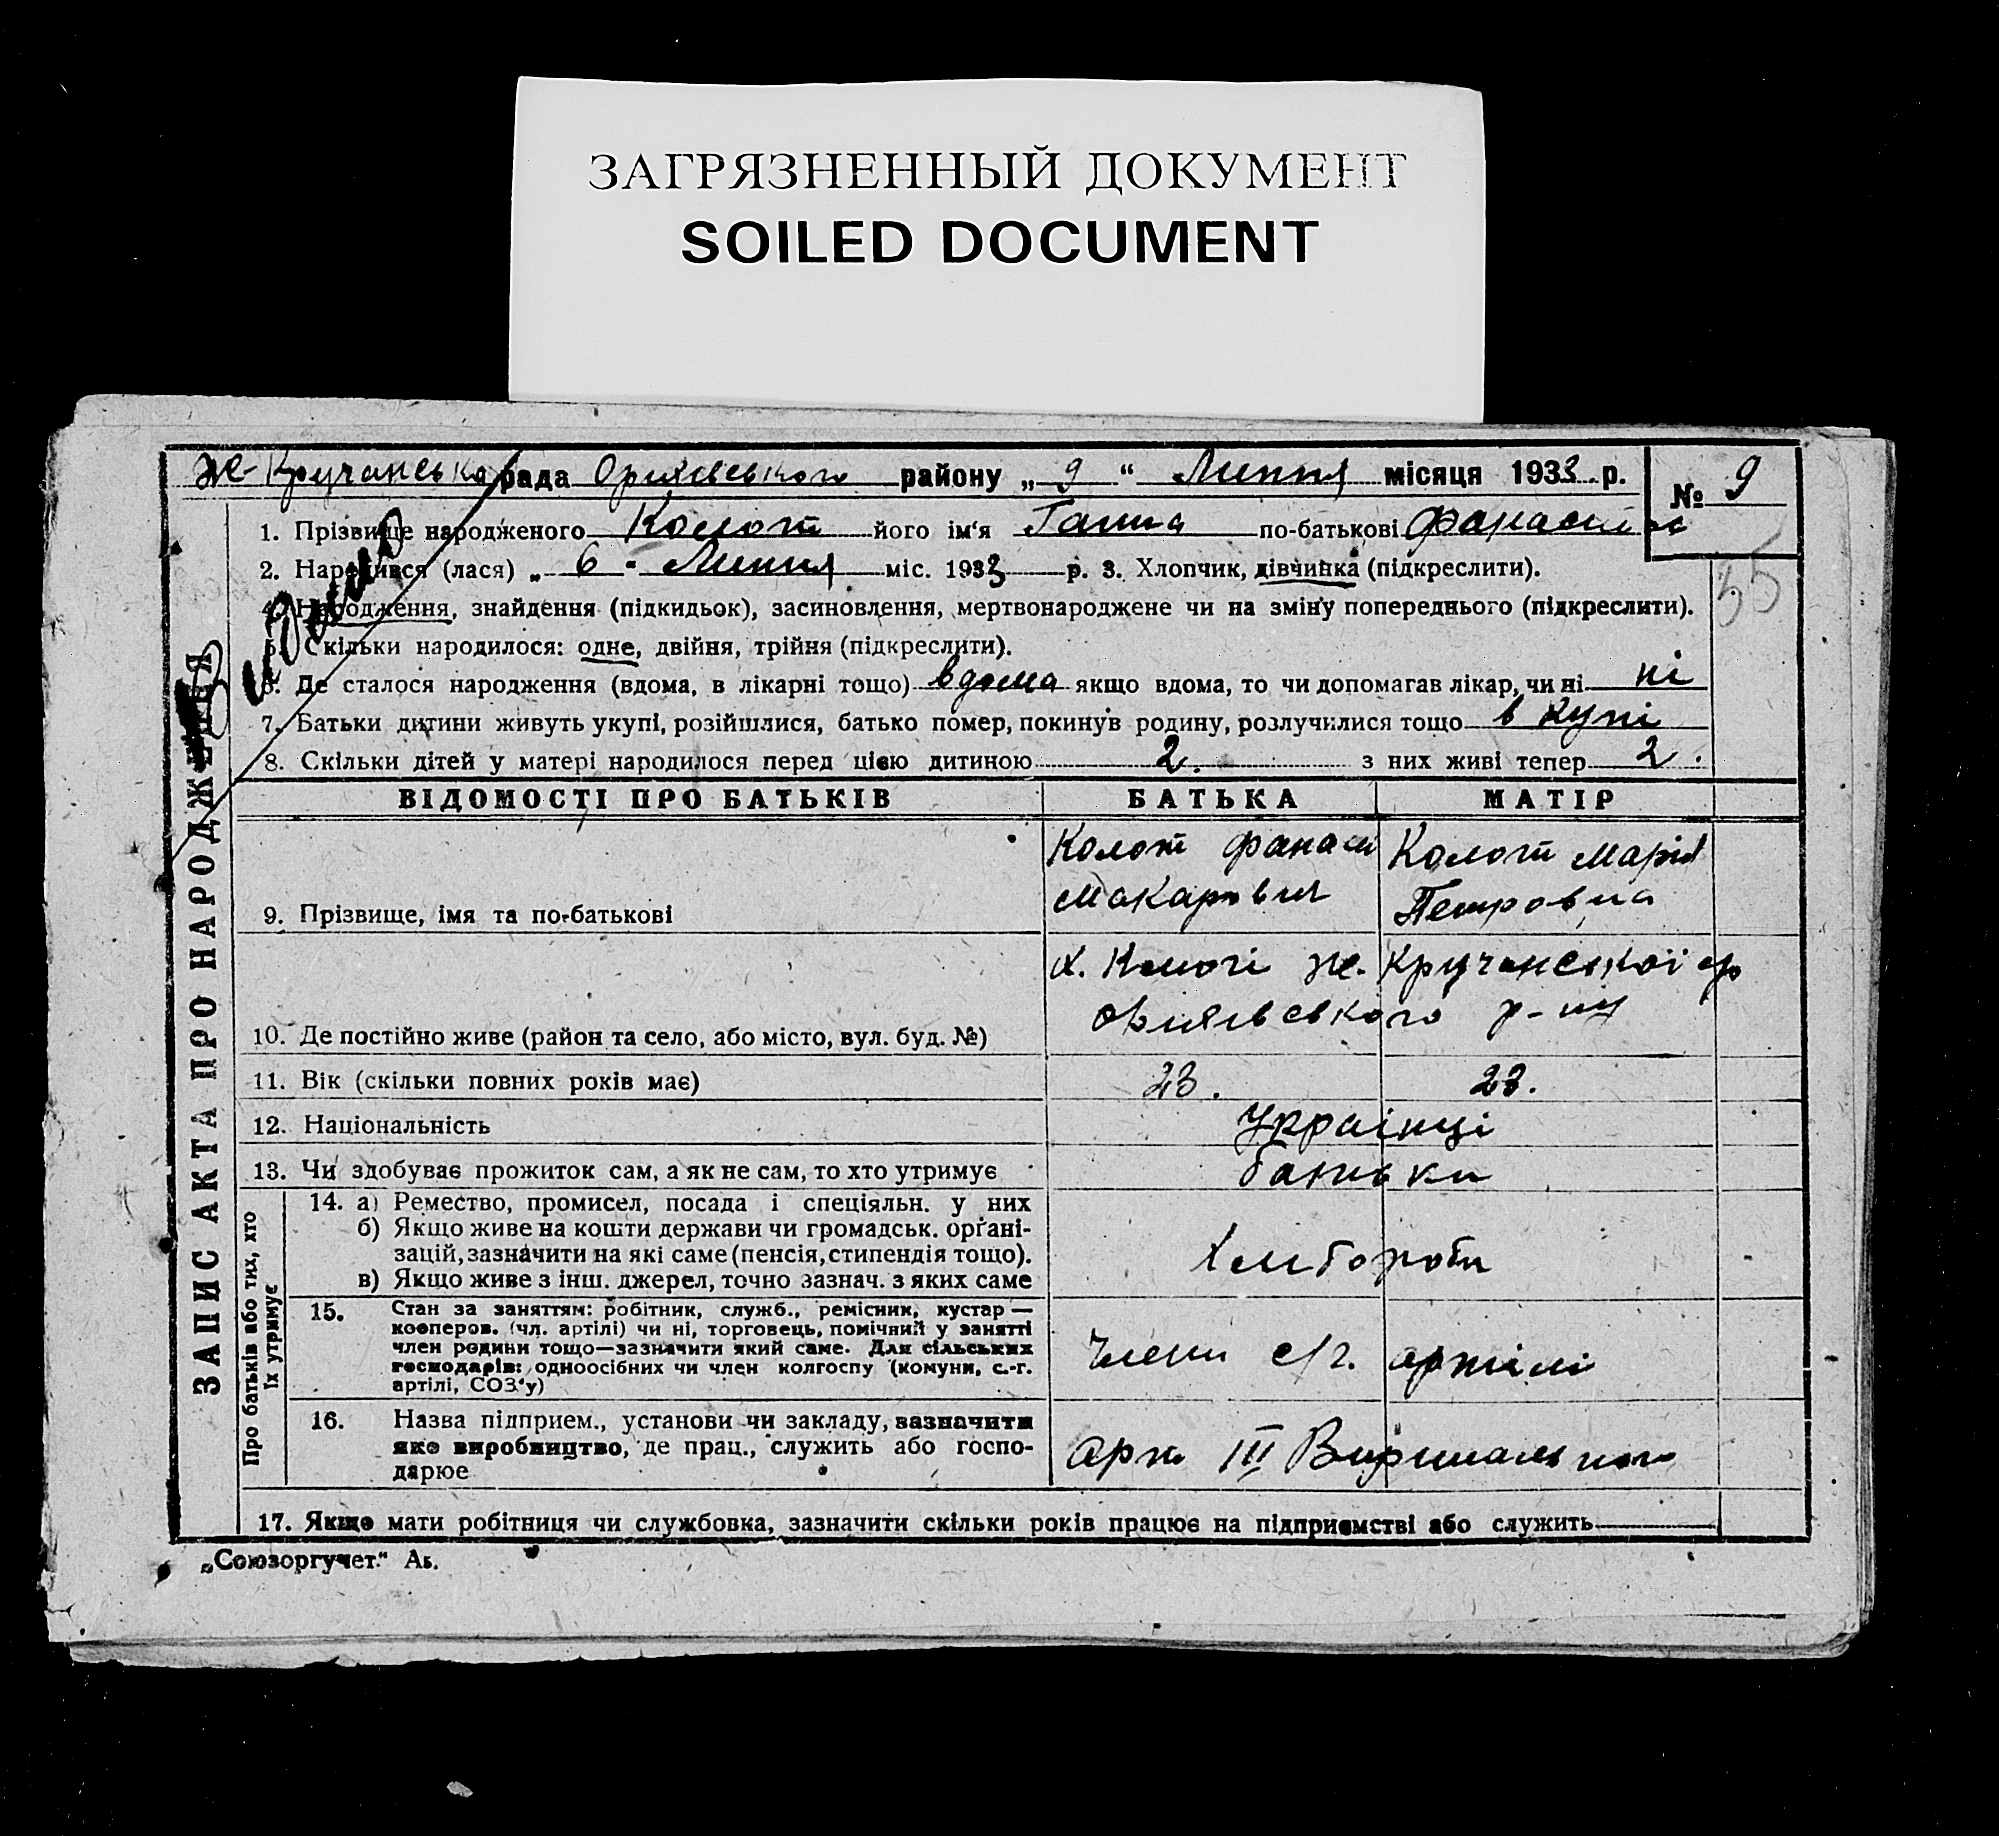 ЗАГРЯЗНЕННЫЙ ДОКУМЕНТ
SOILED DOCUMENT
Ж-Кручанська рада Оржицького району „ 9 “ Липня місяця 1933 р. № 9
1. Прізвище народженого Колот його ім‘я Ганна по-батькові
2. Народився (лася) „ 6 " Липня міс. 1933 р. 3. Хлопчик, дівчинка (підкреслити).
35
4. Народження, знайдення (підкидьок), засиновлення, мертвонароджене чи на зміну попереднього (підкреслити).
5. Скільки народилося: одне, двійня, трійня (підкреслити).
6. Де сталося народження (вдома, в лікарні тощо) вдома якщо вдома, то чи допомагав лікар, чи ні ні
7. Батьки дитини живуть укупі, розійшлися, батько помер, покинув родину, розлучилися тощо в купі
8. Скільки дітей у матері народилося перед цією дитиною 2. з них живі тепер 2.
ЗАПИС АКТА ПРО НАРОДЖЕННЯ
ВІДОМОСТІ ПРО БАТЬКІВ БАТЬКА МАТІР
Колот Фанасій Колот Марія
Макарович Петровна
9. Прізвище, імя та по-батькові
х. Колоті Ж. Кручанської с/р
р-ну
10. Де постійно живе (район та село, або місто, вул. буд. №)
11. Вік (скільки повних років має) 23. 23.
12. Національність Українці
13. Чи здобуває прожиток сам, а як не сам, то хто утримує батьки
Про батьків або тих, хто
їх утримує
14. а) Ремество, промисел, посада і спеціяльн. у них
б) Якщо живе на кошти держави чи громадськ. органі-
зацій, зазначити на які саме (пенсія, стипендія тощо).
в) Якщо живе з інш. джерел, точно зазнач. з яких саме
Хлібороби
15. Стан за заняттям: робітник, служб., ремісник, кустар —
кооперов. (чл. артілі) чи ні, торговець, помічний у занятті
член родини тощо—зазначити який саме. Для сільських
господарів: одноосібних чи член колгоспу (комуни, с.-г.
артілі, СОЗ‘у)
Члени с/г. артілі
16. Назва підприєм., установи чи закладу, зазначити
яке виробництво, де прац., служить або госпо-
дарює
Арт. III Вирішального
17. Якщо мати робітниця чи службовка, зазначити скільки років працює на підприємстві або служить
„Союзоргучет.“ Аь.